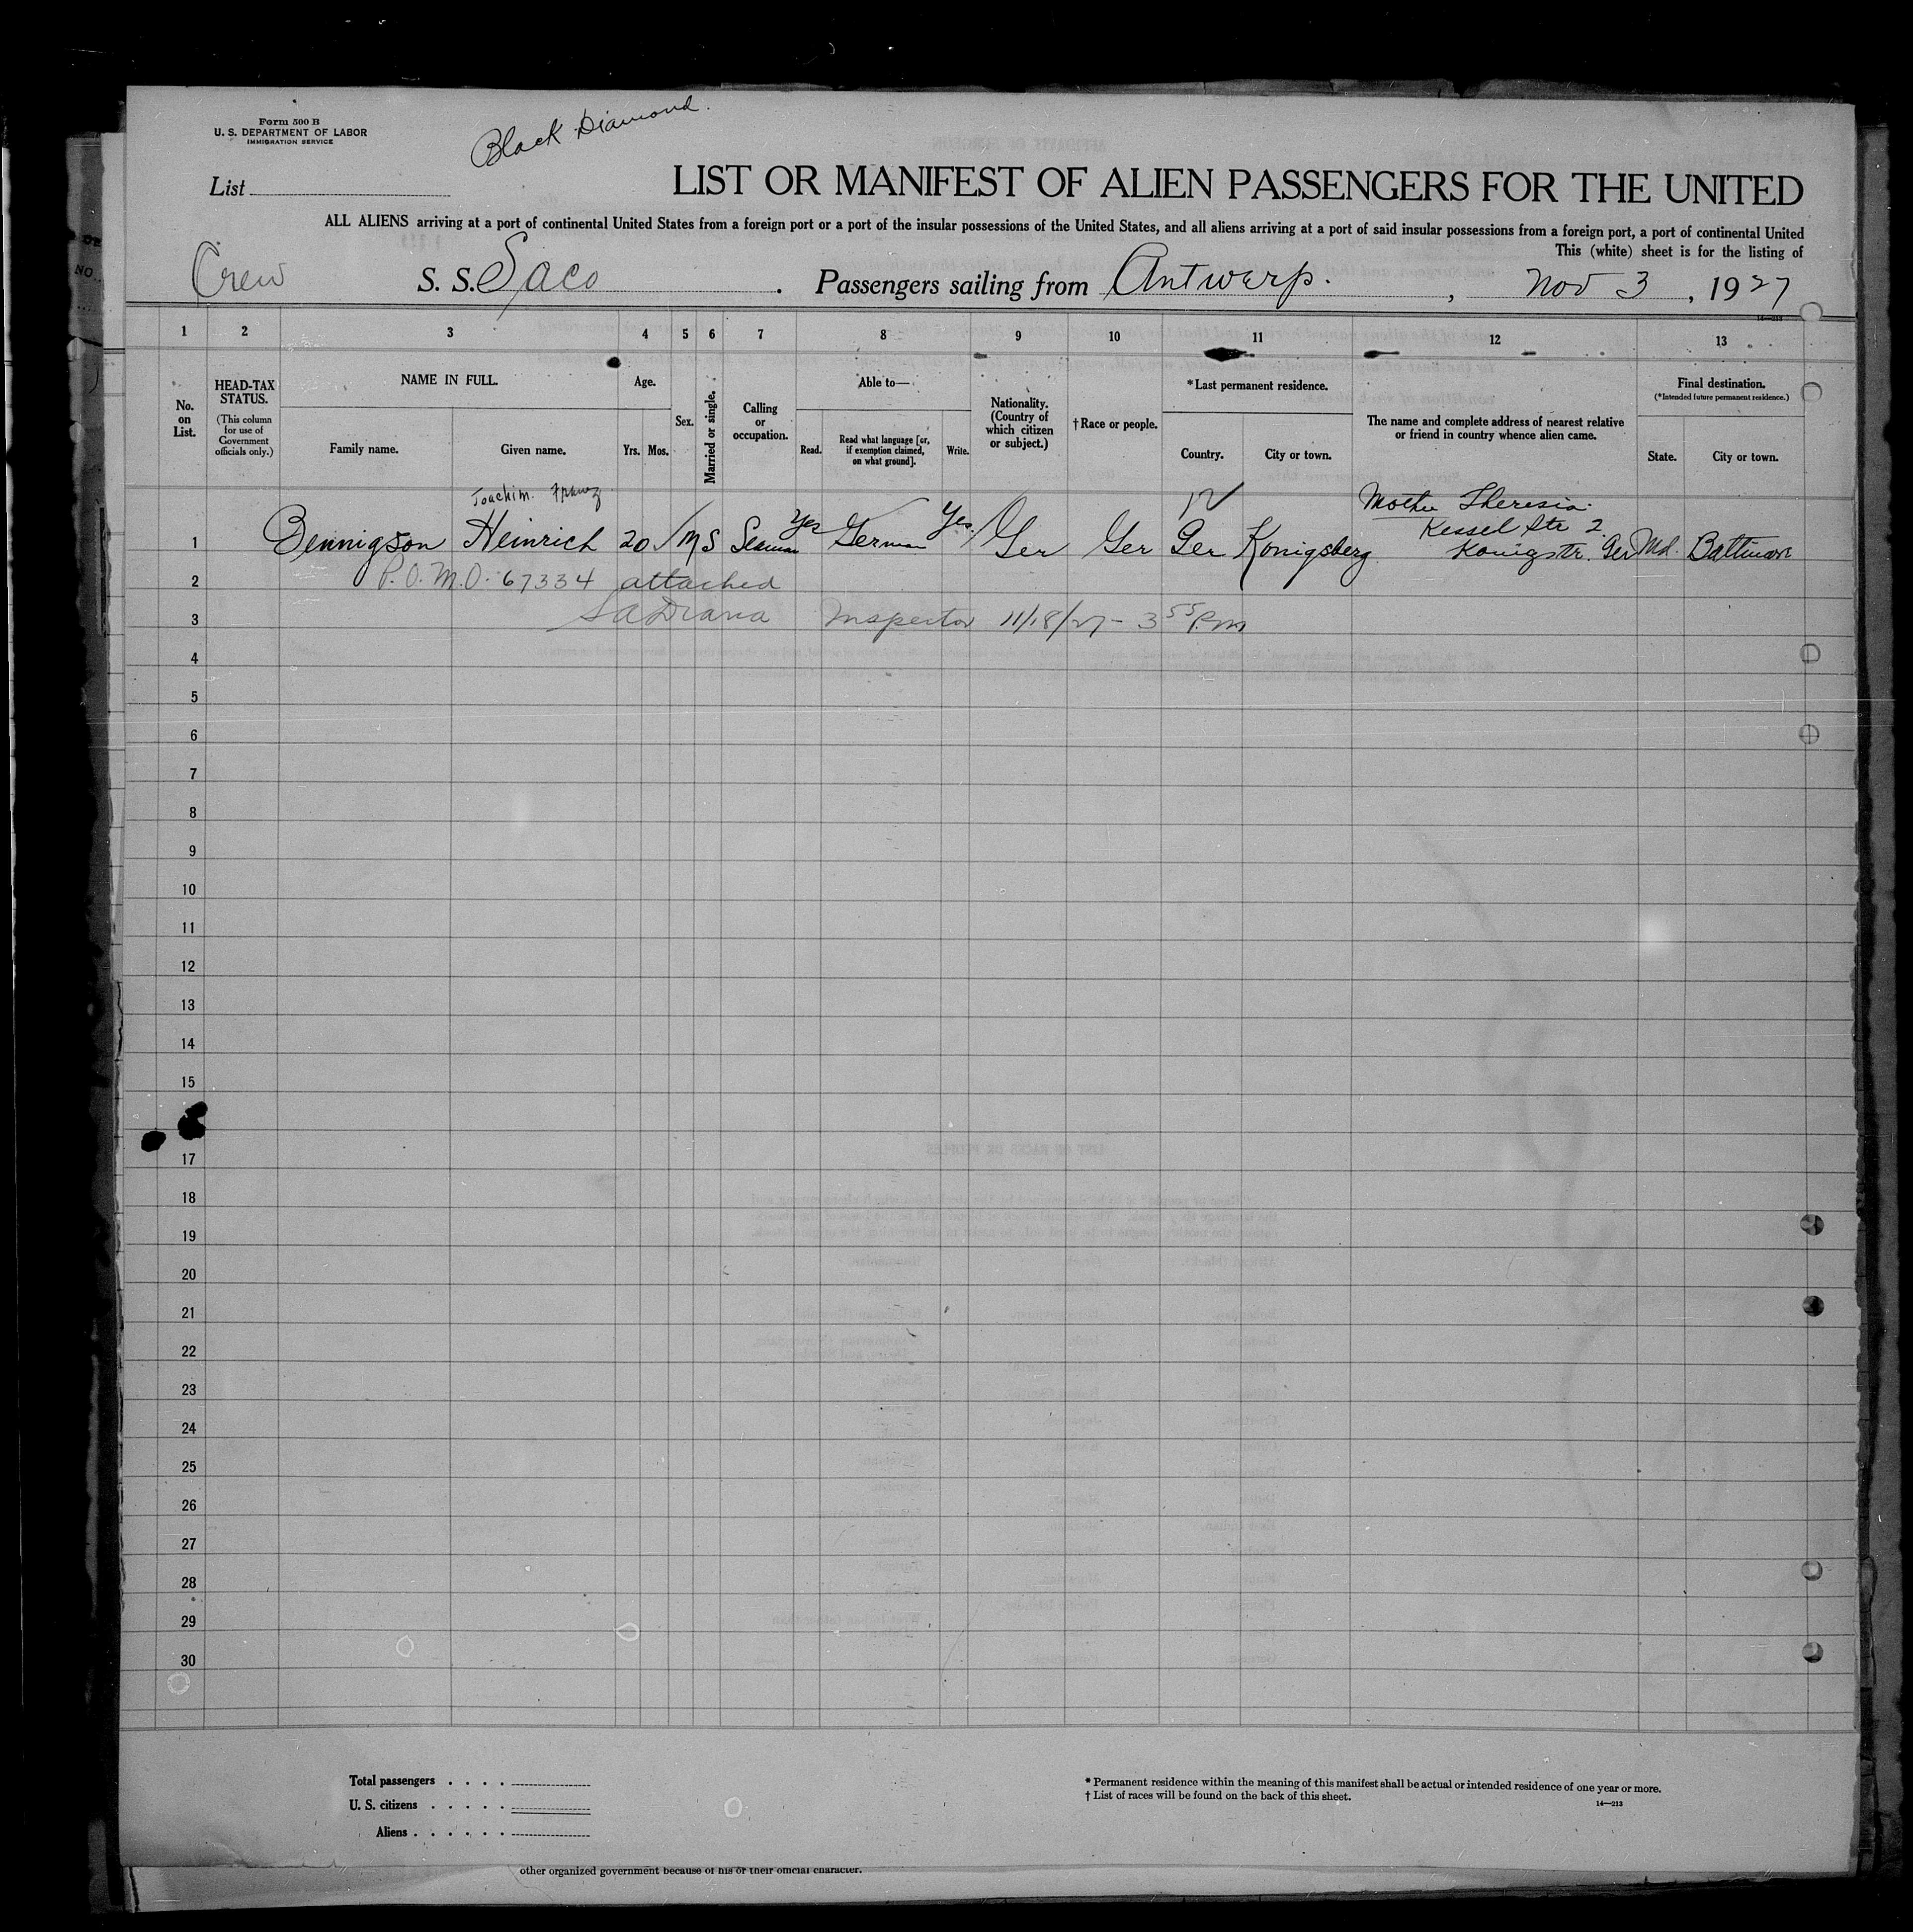 Form 500 B
U. S. DEPARTMENT OF LABOR
IMMIGRATION SERVICE
Black Diamond.
List
LIST OR MANIFEST OF ALIEN PASSENGERS FOR THE UNITED
ALL ALIENS arriving at a port of continental United States from a foreign port or a port of the insular possessions of the United States, and all aliens arriving at a port of said insular possessions from a foreign port, a port of continental United
This (white) sheet is for the listing of
Crew S. S. Saco . Passengers sailing from Antwerp. , Nov 3 , 1927
1 2 3 4 5 6 7 8 9 10 11 12 13
No. on List.
HEAD-TAX STATUS.
(This column for use of Government officials only.)
NAME IN FULL.
Family name. Given name.
Age.
Yrs. Mos.
Sex.
Married or single.
Calling or occupation.
Able to—
Read. Read what language [or, if exemption claimed, on what ground]. Write.
Nationality. (Country of which citizen or subject.)
†Race or people.
*Last permanent residence.
Country. City or town.
The name and complete address of nearest relative or friend in country whence alien came.
Final destination.
(*Intended future permanent residence.)
State. City or town.
Joachim. Franz
Mother Theresia.
Kessel Str 2.
1 Bennigson Heinrich 20 M S Seaman Yes German Yes. Ger Ger Ger Konigsberg Konigstr. Ger Md. Baltimore
2 P.O.M.O. 67334 attached
3 Inspector 11/18/27 - 3 55 P.m
4
5
6
7
8
9
10
11
12
13
14
15
17
18
19
20
21
22
23
24
25
26
27
28
29
30
Total passengers . . . .
U. S. citizens . . . . .
Aliens . . . . . .
* Permanent residence within the meaning of this manifest shall be actual or intended residence of one year or more.
† List of races will be found on the back of this sheet.
14—213
other organized government because of his or their official character.